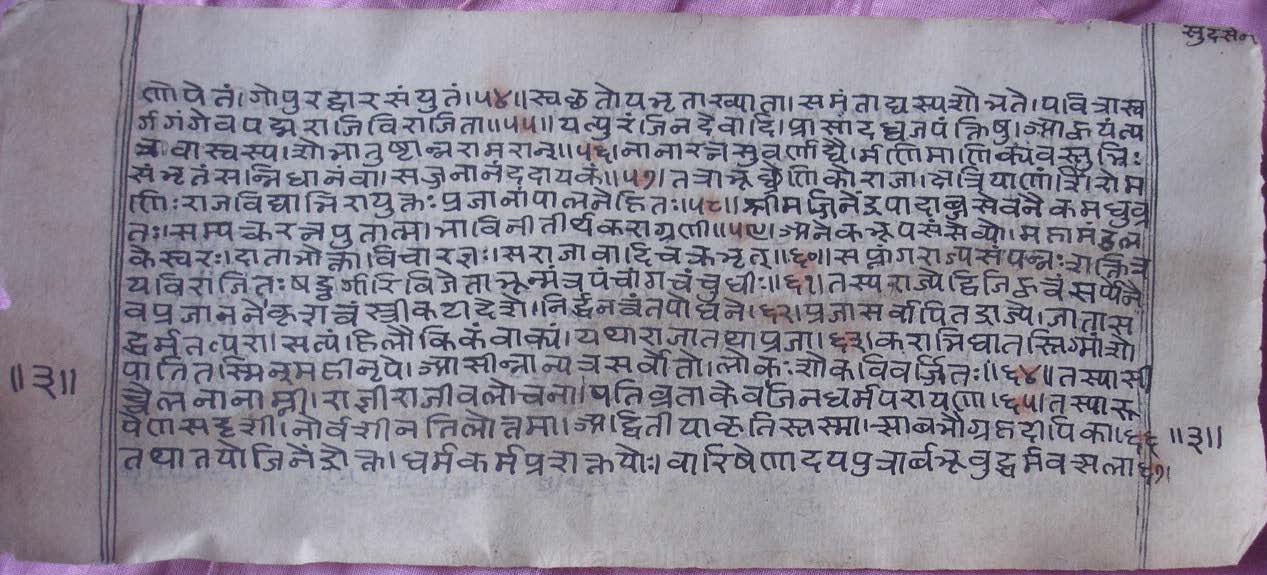 सुदसेन
णोपेतं।गोपुरद्वारसंयुतं।५४॥स्वछतोयभृताख्याता।समंताद्यस्यशोभते।पवित्रास्व
र्गगंगेवपद्मराजिविराजिता॥५५॥यत्पुरंजिनदेवादि।प्रासादध्वजपंक्तिषु।आऊयंत्य
त्रवास्वस्य।शोभातुष्टान्नरामरान्॥५६।नानारत्नसुवर्णाद्यै।र्मणिमाणिक्यवस्तुभिः
संभृतंसन्निधानंवा।सज्जनानंददायकं॥५७।तत्राभूछ्रेणिकोराजा।क्षत्रियाणांशिरोम
णिः।राजविद्याभिरायुक्तःप्रजानांपालनेहितः।५८॥श्रीमज्जिनेंद्रपादाब्जसेवनैकमधुव्र
तः।सम्यक्तरत्नपुतात्माभाविनीतीर्थकराग्रणी॥५९।अनेकभूपसंसेव्यो।महामंडल
केस्वरः।दाताभोक्ताविचारज्ञः।सराजावादिचक्रभृत्॥६०॥सप्तांगराज्यसंपन्नःशक्तित्र
यविराजितःषड्वर्गारिविजेताभून्मंत्रपंचांगचंचुधीः॥६१।तस्यराज्येद्विजिह्वत्वंसर्प्पेनै
वप्रजाजनेकृशत्वंस्त्रीकटीदेशे।निर्द्धनत्वंतपोधने।६२।प्रजासर्वापितद्राज्ये।जातास
द्धर्मतत्परा।सत्यंहिलौकिकंवाक्यं।यथाराजातथाप्रजा।६३।कराभिघातस्तिग्मांशो
पातितस्मिन्महीनृपे।आसीन्नान्यत्रसर्वोतो।लोकःशोकविवर्जितः॥६४॥तस्यासी
च्चेलनानाम्नी।राज्ञीराजीवलोचना।पतिव्रताकेवजिनधर्मपरायणा।६५।तस्यारू
पेणसदृशी।नोर्वशीनतिलोत्तमा।अद्वितीयाकृतिस्तस्मा।त्साबभौगृहदीपिका।६६
तथातयोजिनेंद्रोक्त।धर्मकर्मप्रशक्तयोः।वारिषेणादयपुत्रार्बभूवुद्धर्मवत्सला६७।
॥३॥
॥३॥